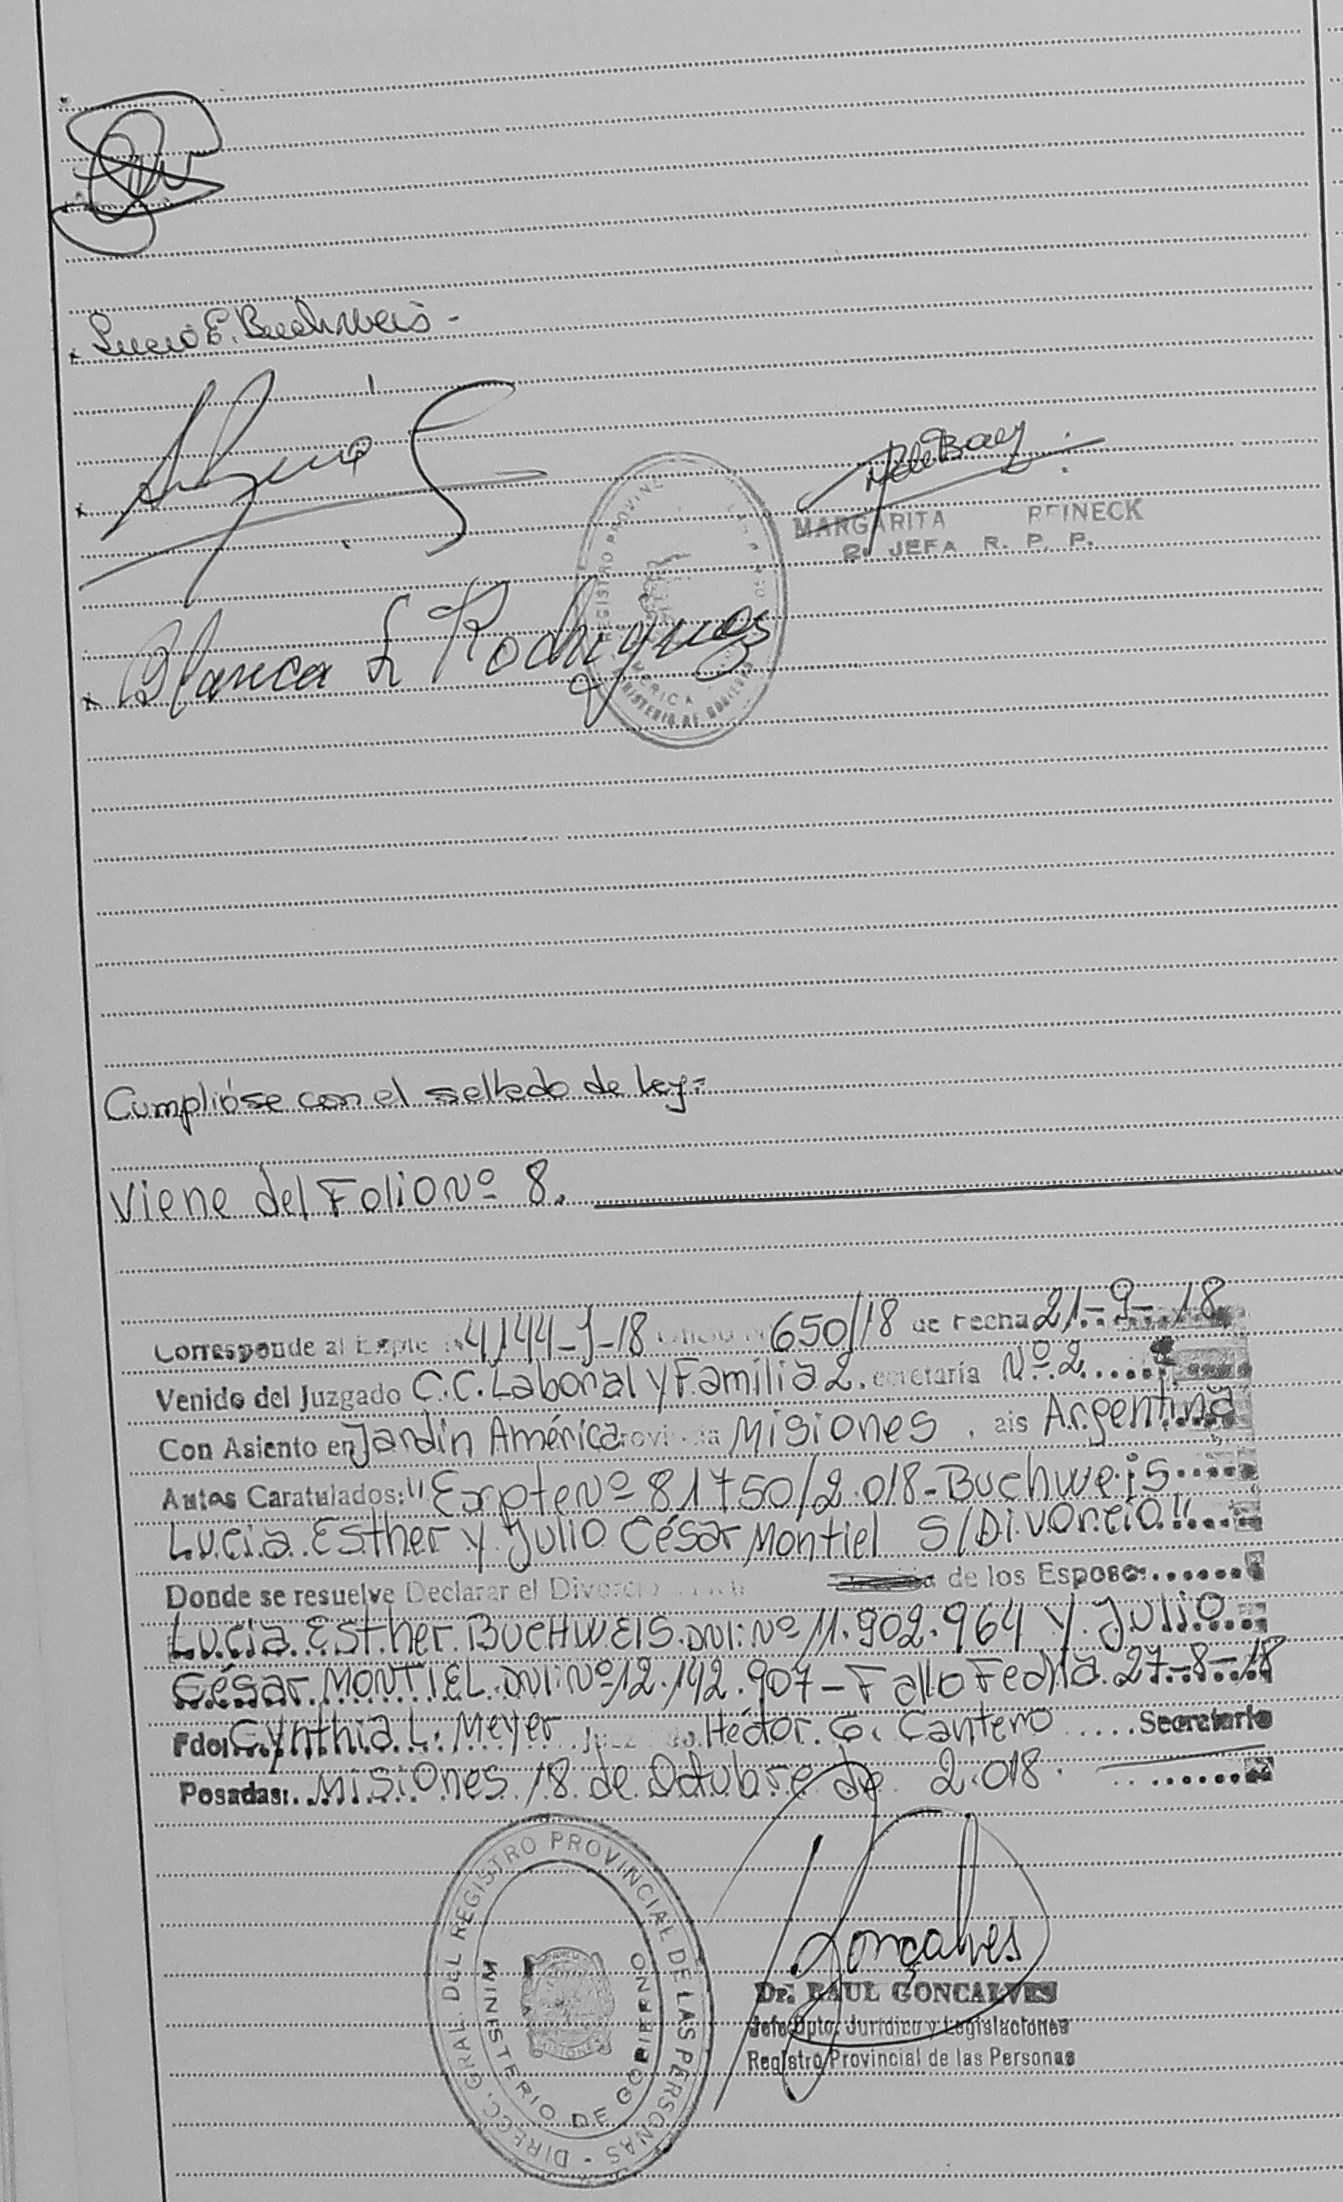 Lucia E. Buchweis -
MARGARITA REINECK
2. JEFA R. P. P.
REGISTRO PROVINC
AMERICA
MINISTERIO DE GOBIERNO
Blanca L Rodriguez
Cumplióse con el sellado de Ley.=
Viene del Folio Nº 8.
Corresponde al Expte N 4144-J-18 Oficio N 650/18 de Fecha 21-9-18
Venido del Juzgado C.C. Laboral y Família 2. ecretaría Nº 2
Con Asiento en Jardín América rovincia Misiones. ais Argentina
Autos Caratulados: "Expte Nº 81750/2.018- Buchweis
Lucia Esther y Julio César Montiel S/Divorcio"
Donde se resuelve Declarar el Divorcio de los Esposos
Lucia Esther BUCHWEIS. DNI: Nº 11.902.964 y Julio
César MONTIEL. DNI: Nº 12.142.907- Fallo Fecha 27-8-18
Fdo: Cynthia L. Meyer Juez do. Héctor. G. Cantero Secretario
Posadas: Misiones 18 de Octubre de 2.018.
DIRECC. GRAL. DEL REGISTRO PROVINCIAL DE LAS PERSONAS -
MINISTERIO DE GOBIERNO
MISIONES
Goncalves
Dr. RAUL GONCALVES
Jefe Dpto. Jurídico y Legislaciones
Registro Provincial de las Personas